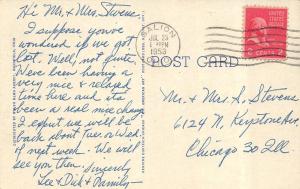 Hi Mr. & Mrs. Stevens
I suppose you've
wondered if we got
lost. Well, not quite.
We've been having a
very nice & relaxed
time here and it's
been a real nice change
I expect we will be
back about Tues. or Wed.
of next week. We will
see you then. Sincerely
Lee & Dick & Family
GALION
JUL 25
PM
1953
2 CENTS 2
POST CARD
Mr. & Mrs. L. Stevens
6124 N. Keystone Ave
Chicago 30 Ill.